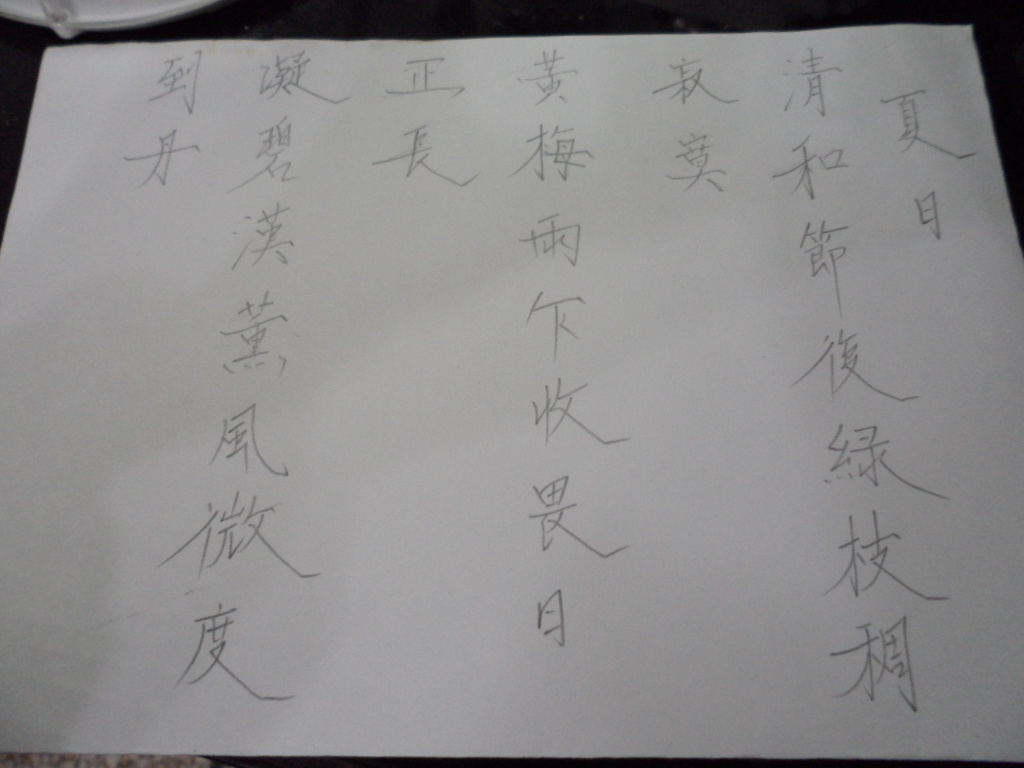 夏日
清和節後綠枝稠
寂寞
黃梅雨乍收畏日
正長
凝碧漢薰風微度
到丹